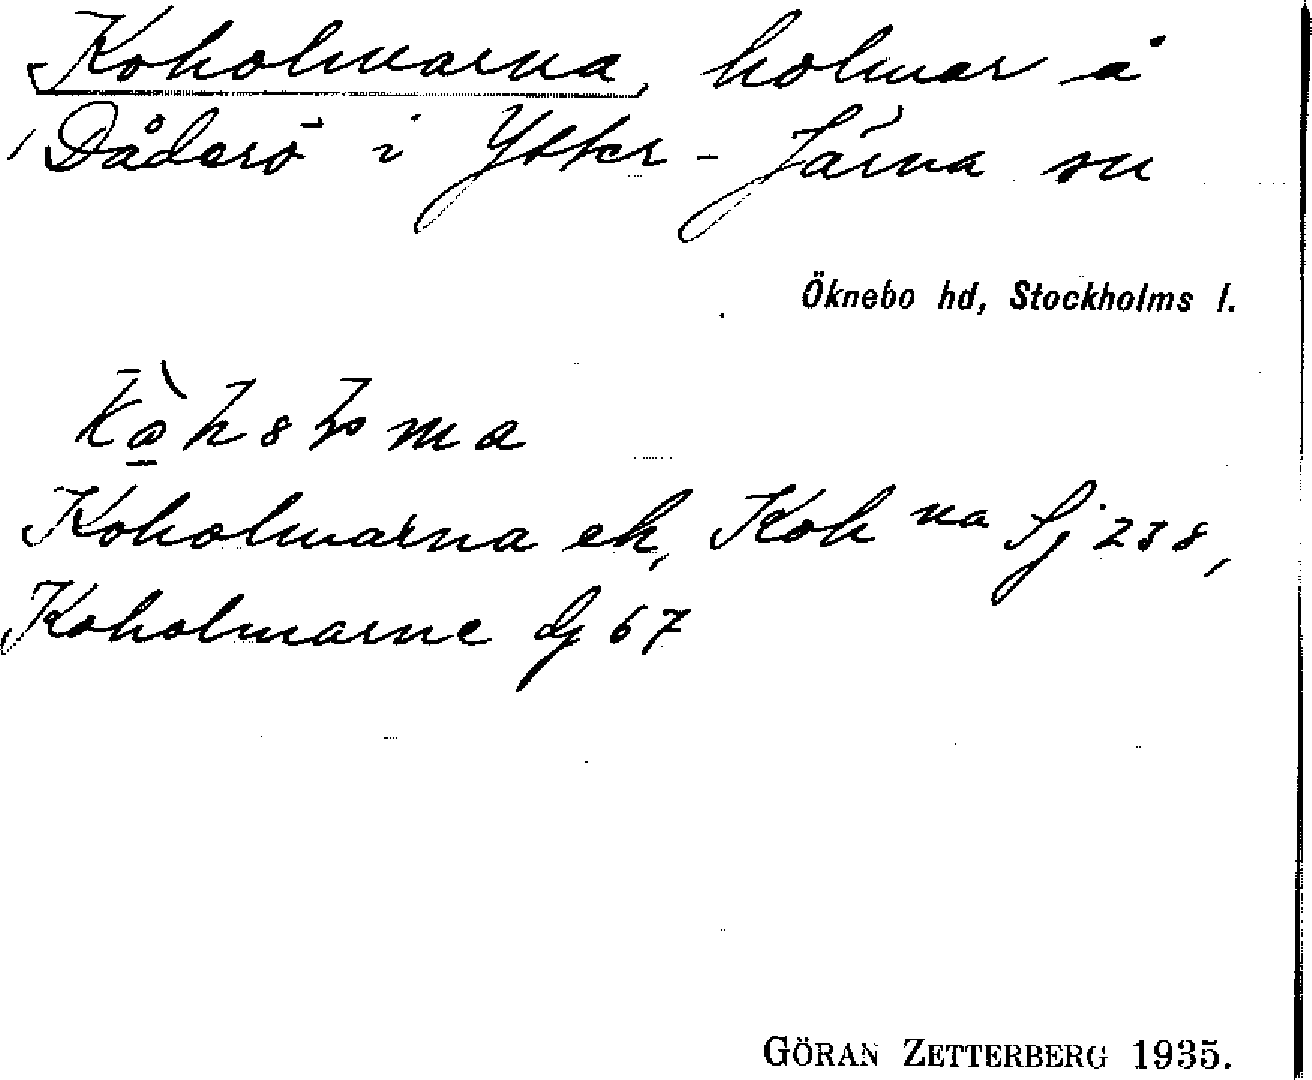 Koholmarna, holmar å
Dåderö i Ytter-Järna sn
Öknebo hd, Stockholms l.
Koholmarna ek, Koh na Sj 238,
Koholmarne Dj 67
GÖRAN ZETTERBERG 1935.